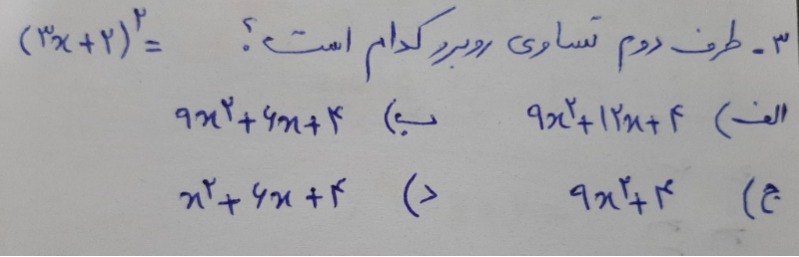 ۳ـ طرف دوم تساوی روبرو کدام است؟ (۳x+۲)^۲=
الف) ۹x^۲+۱۲x+۴ ب) ۹x^۲+۶x+۴
ج) ۹x^۲+۴ د) x^۲+۶x+۴